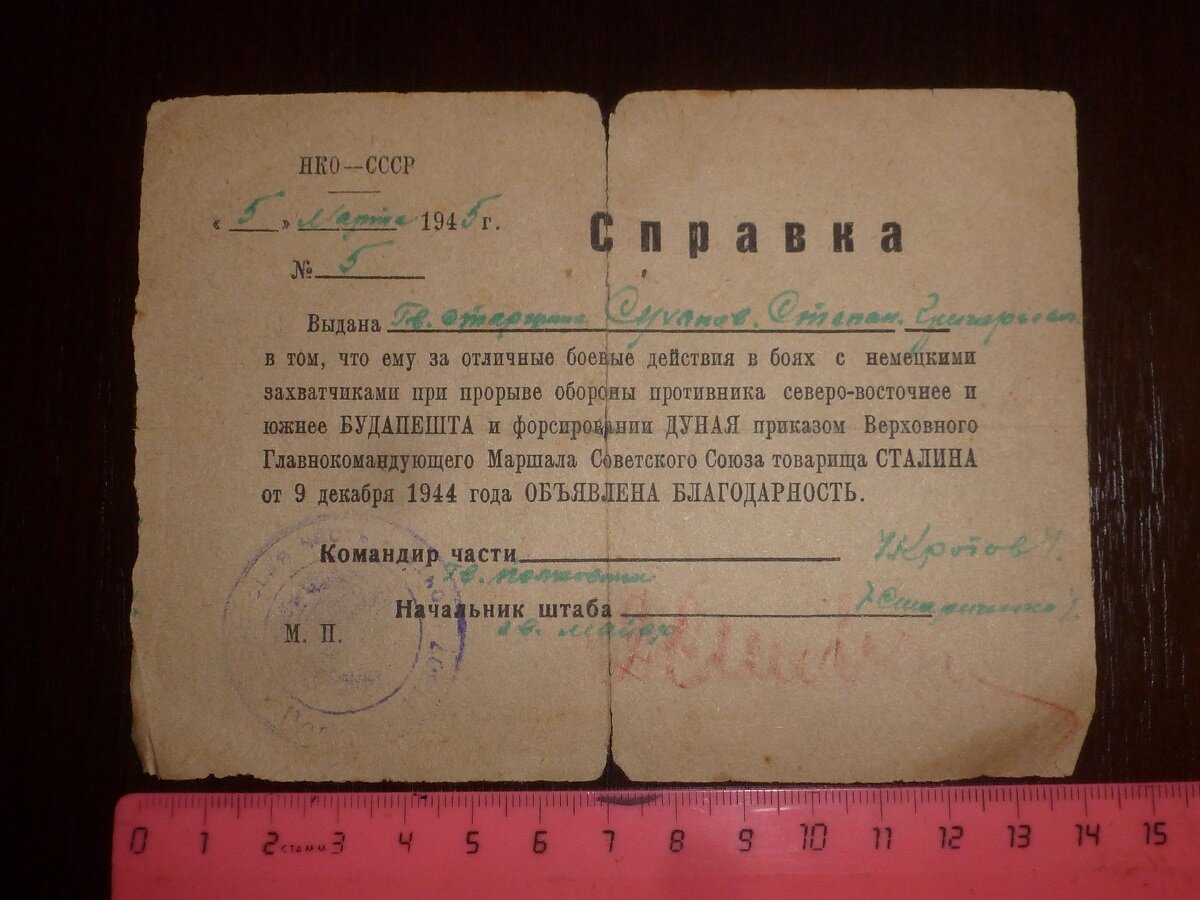 НКО—СССР
« 5 » Марта 1945 г.
№ 5
Справка
Выдана Гв. старшине Суханов. Степан. Григорьевич
в том, что ему за отличные боевые действия в боях с немецкими
захватчиками при прорыве обороны противника северо-восточнее и
южнее БУДАПЕШТА и форсировании ДУНАЯ приказом Верховного
Главнокомандующего Маршала Советского Союза товарища СТАЛИНА
от 9 декабря 1944 года ОБЪЯВЛЕНА БЛАГОДАРНОСТЬ.
Командир части /Кротов/.
Гв. полковник
Начальник штаба
гв. майор
М. П.
0 1 2 стамм 3 4 5 6 7 8 9 10 11 12 13 14 15